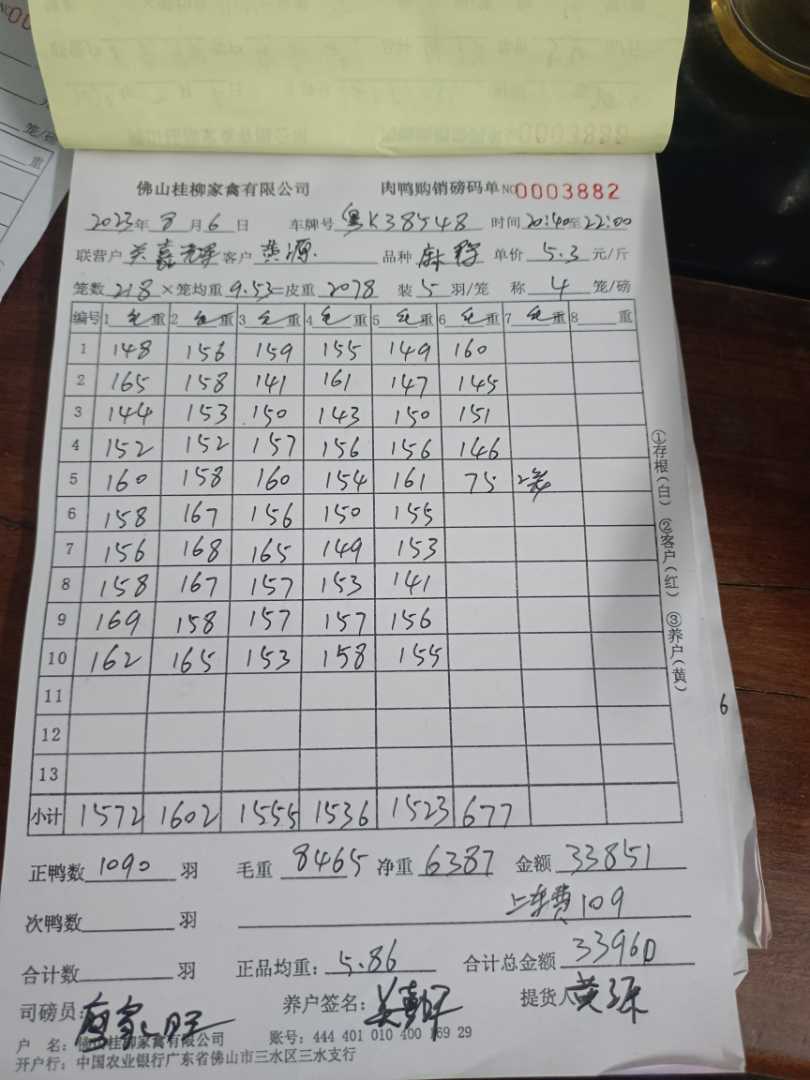 佛山桂柳家禽有限公司 肉鸭购销磅码单 NO 0003882
2023年 8月 6日 车牌号 粤K38548 时间 20:40至22:00
联营户 客户 黄源 品种 麻 单价 5.3 元/斤
笼数 218 ×笼均重 9.53=皮重 2078 装 5 羽/笼 称 4 笼/磅
编号 1 毛重 2 毛重 3 毛重 4 毛重 5 毛重 6 毛重 7 毛重 8 重
1 148 156 159 155 149 160
2 165 158 141 161 147 145
3 144 153 150 143 150 151
4 152 152 157 156 156 146
5 160 158 160 154 161 75 2笼
6 158 167 156 150 155
7 156 168 165 149 153
8 158 167 157 153 141
9 169 158 157 157 156
10 162 165 153 158 155
11
12
13
小计 1572 1602 1555 1536 1523 677
①存根(白) ②客户(红) ③养户(黄)
正鸭数 1090 羽 毛重 8465 净重 6387 金额 33851
次鸭数 羽 上车费109
合计数 羽 正品均重: 5.86 合计总金额 33960
司磅员: 养户签名: 提货人 黄源
户 名: 佛山桂柳家禽有限公司 账号: 444 401 010 400 169 29
开户行: 中国农业银行广东省佛山市三水区三水支行
6